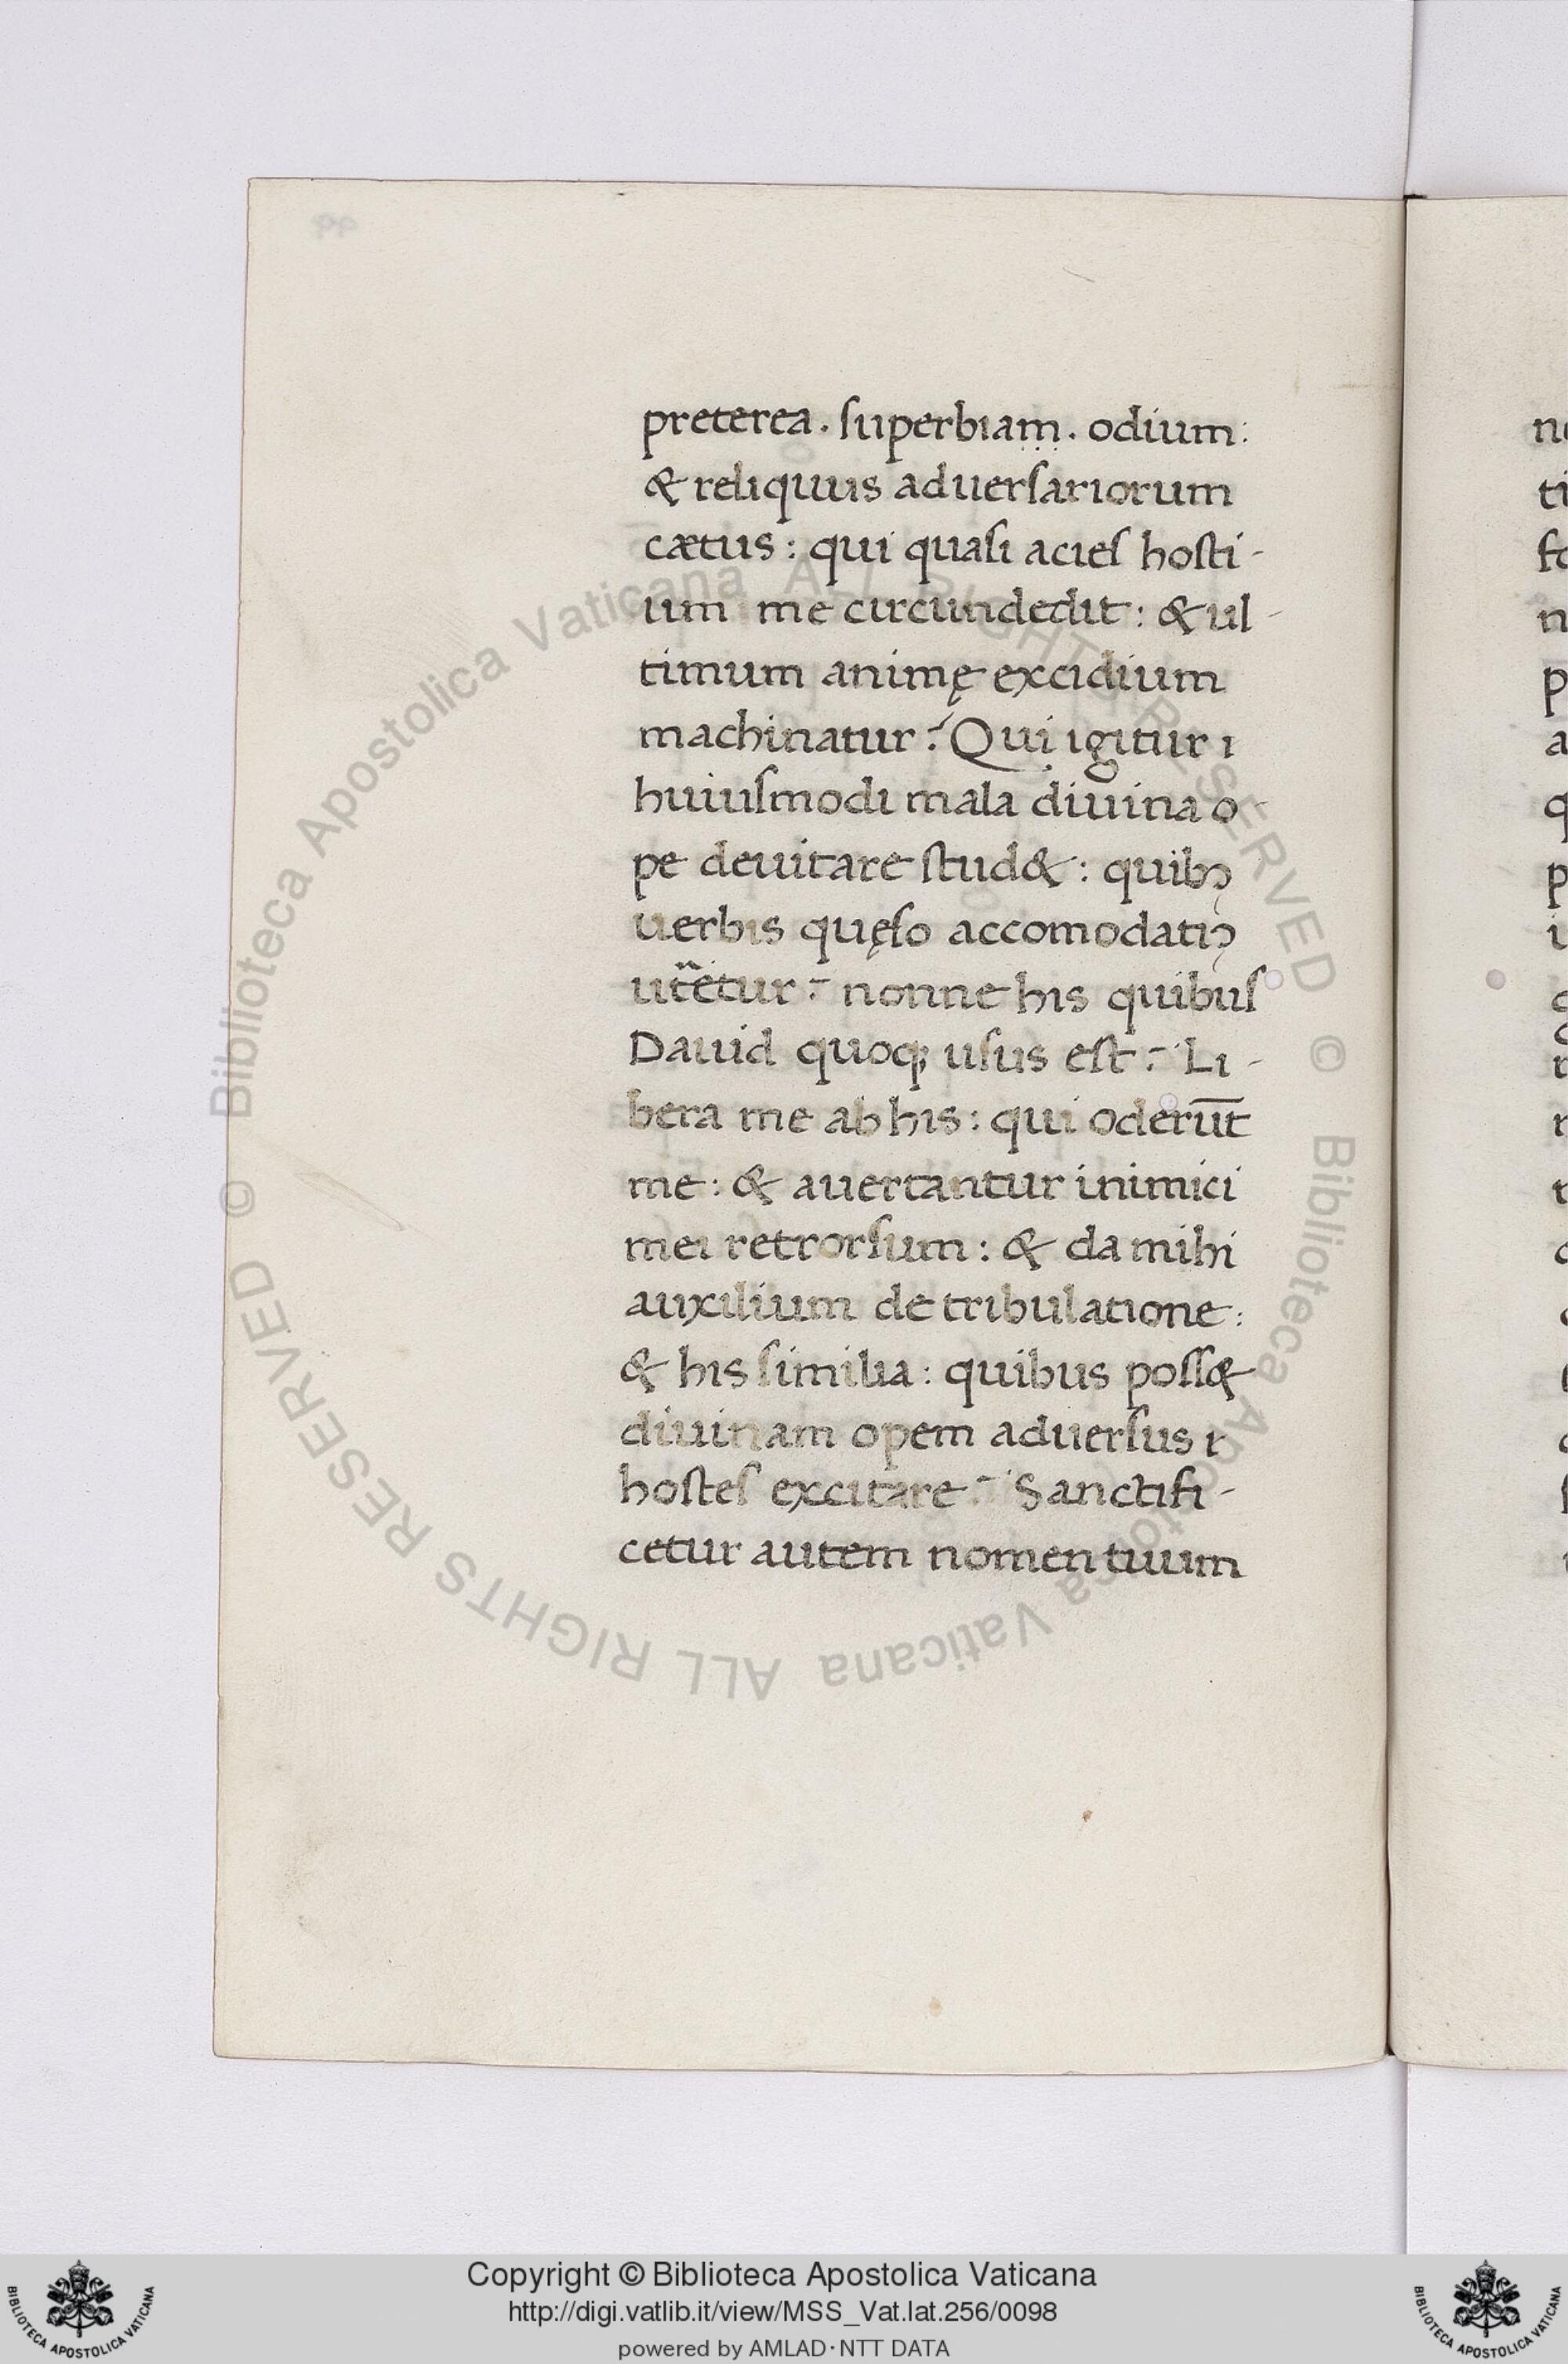 preterea. ſuperbiam. odium:
& reliquus aduerſariorum
cætus: qui quaſi acieſ hoſti-
um me circundedit: & ul-
timum animę excidium
machinatur? Qui igitur ı
huiuſmodi mala diuina o-
pe deuitare ſtud&: quibꝰ
uerbis quęſo accomodatiꝰ
utētur? nonne his quibuſ
Dauid quoqꝫ uſus eſt? Li-
bera me ab his: qui oderūt
me: & auertantur inimici
mei retrorſum: & da mihi
auxilium de tribulatione:
& his ſimilia: quibus poſſ&
diuinam opem aduerſus ı
hoſteſ excitare? Sanctifi-
cetur autem nomen tuum
© Biblioteca Apostolica Vaticana ALL RIGHTS RESERVED © Biblioteca Apostolica Vaticana ALL RIGHTS RESERVED
Copyright © Biblioteca Apostolica Vaticana
http://digi.vatlib.it/view/MSS_Vat.lat.256/0098
powered by AMLAD·NTT DATA
BIBLIOTECA APOSTOLICA VATICANA
BIBLIOTECA APOSTOLICA VATICANA